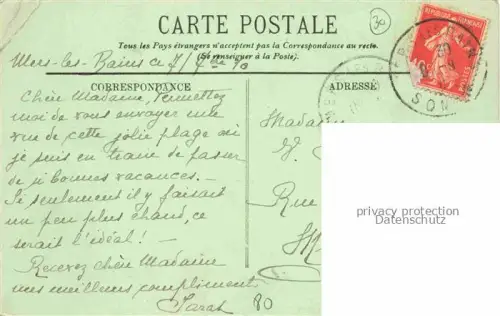 CARTE POSTALE
30
Tous les Pays étrangers n'acceptent pas la Correspondance au recto.
(Se renseigner à la Poste).
Mers-les-Bains ce 7/ 10
CORRESPONDANCE
ADRESSE
Chère Madame, Permettez
moi de vous envoyer une
vue de cette jolie plage où
je suis en train de passer
de si bonnes vacances. —
Si seulement il y faisait
un peu plus chaud, ce
serait l'idéal! —
Recevez chère Madame
mes meilleurs compliments
Sarah
80
Madame
Rue
privacy protection
Datenschutz